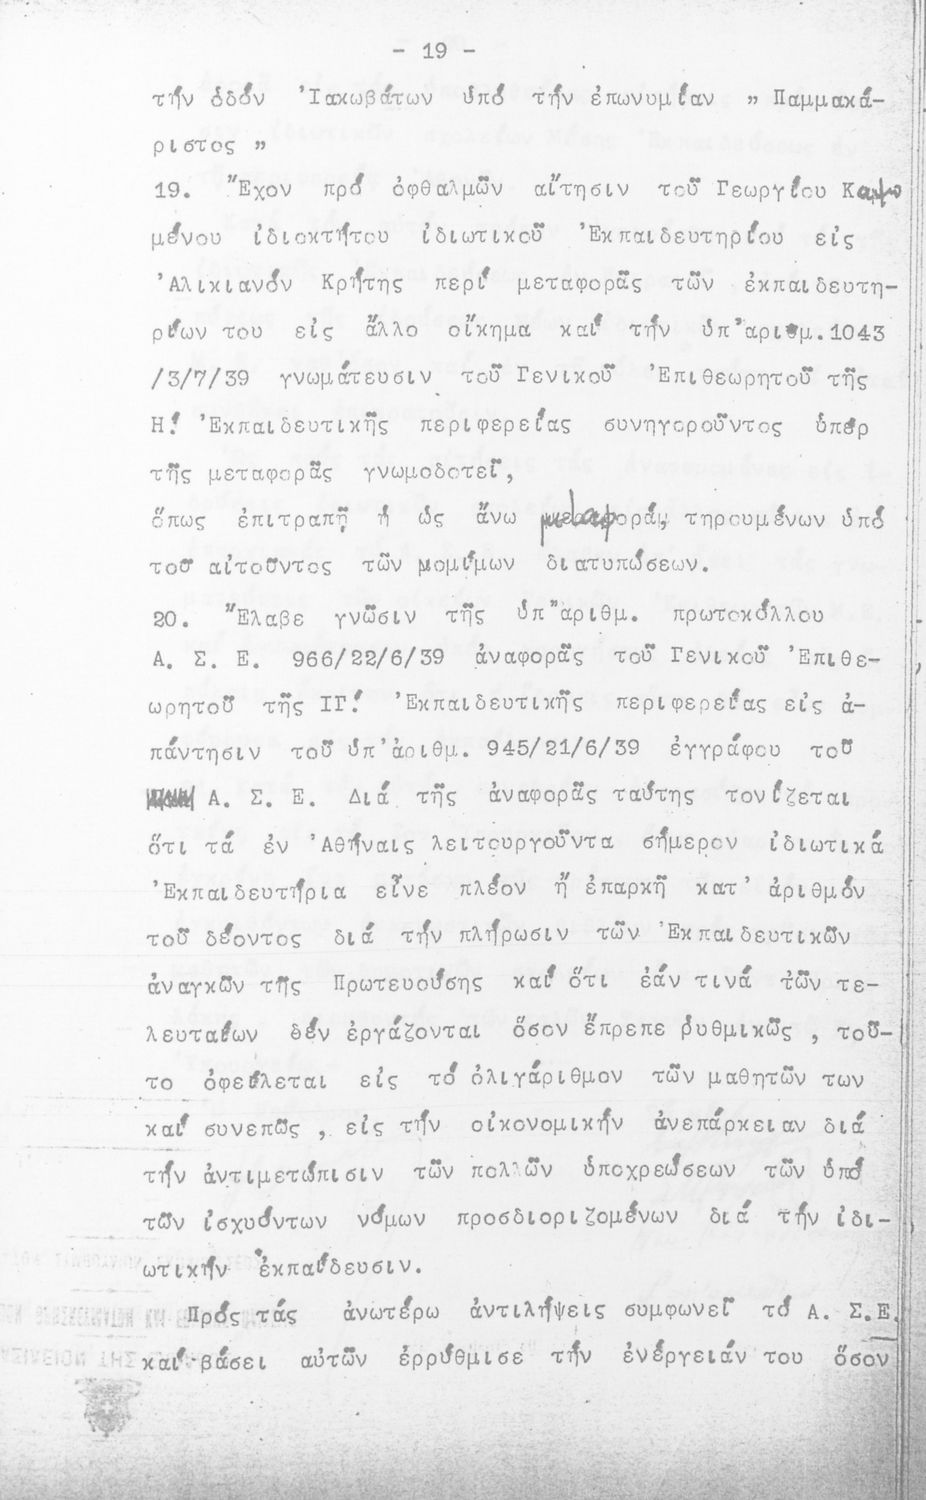 - 19 -
τήν ὁδόν Ἰακωβάτων ὑπό τήν ἐπωνυμίαν " Παμμακά-
ριστος "
19. Ἔχον πρό ὀφθαλμῶν αἴτησιν τοῦ Γεωργίου Καψω
μένου ἰδιοκτήτου ἰδιωτικοῦ Ἐκπαιδευτηρίου εἰς
Ἀλικιανόν Κρήτης περί μεταφορᾶς τῶν ἐκπαιδευτη-
ρίων του εἰς ἄλλο οἴκημα καί τήν ὑπ'αριθμ.1043
/3/7/39 γνωμάτευσιν τοῦ Γενικοῦ Ἐπιθεωρητοῦ τῆς
Η! Ἐκπαιδευτικῆς περιφερείας συνηγοροῦντος ὑπέρ
τῆς μεταφορᾶς γνωμοδοτεῖ,
ὅπως ἐπιτραπῇ ἡ ὡς ἄνω μεταφορά, τηρουμένων ὑπό
τοῦ αἰτοῦντος τῶν νομίμων διατυπώσεων.
20. Ἔλαβε γνῶσιν τῆς ὑπ"ἀριθμ. πρωτοκόλλου
Α. Σ. Ε. 966/22/6/39 ἀναφορᾶς τοῦ Γενικοῦ Ἐπιθε-
ωρητοῦ τῆς ΙΓ! Ἐκπαιδευτικῆς περιφερείας εἰς ἀ-
πάντησιν τοῦ ὑπ'ἀριθμ. 945/21/6/39 ἐγγράφου τοῦ
Α. Σ. Ε. Διά τῆς ἀναφορᾶς ταύτης τονίζεται
ὅτι τά ἐν Ἀθήναις λειτουργοῦντα σήμερον ἰδιωτικά
Ἐκπαιδευτήρια εἶνε πλέον ἤ ἐπαρκῆ κατ' ἀριθμόν
τοῦ δέοντος διά τήν πλήρωσιν τῶν Ἐκπαιδευτικῶν
ἀναγκῶν τῆς Πρωτευούσης καί ὅτι ἐάν τινά τῶν τε-
λευταίων δέν ἐργάζονται ὅσον ἔπρεπε ρυθμικῶς , τοῦ-
το ὀφείλεται εἰς τό ὀλιγάριθμον τῶν μαθητῶν των
καί συνεπῶς , εἰς τήν οἰκονομικήν ἀνεπάρκειαν διά
τήν ἀντιμετώπισιν τῶν πολλῶν ὑποχρεώσεων τῶν ὑπό
τῶν ἰσχυόντων νόμων προσδιοριζομένων διά τήν ἰδι-
ωτικήν ἐκπαίδευσιν.
Πρός τάς ἀνωτέρω ἀντιλήψεις συμφωνεῖ τό Α. Σ.Ε.
καί βάσει αὐτῶν ἐρρύθμισε τήν ἐνέργειάν του ὅσον